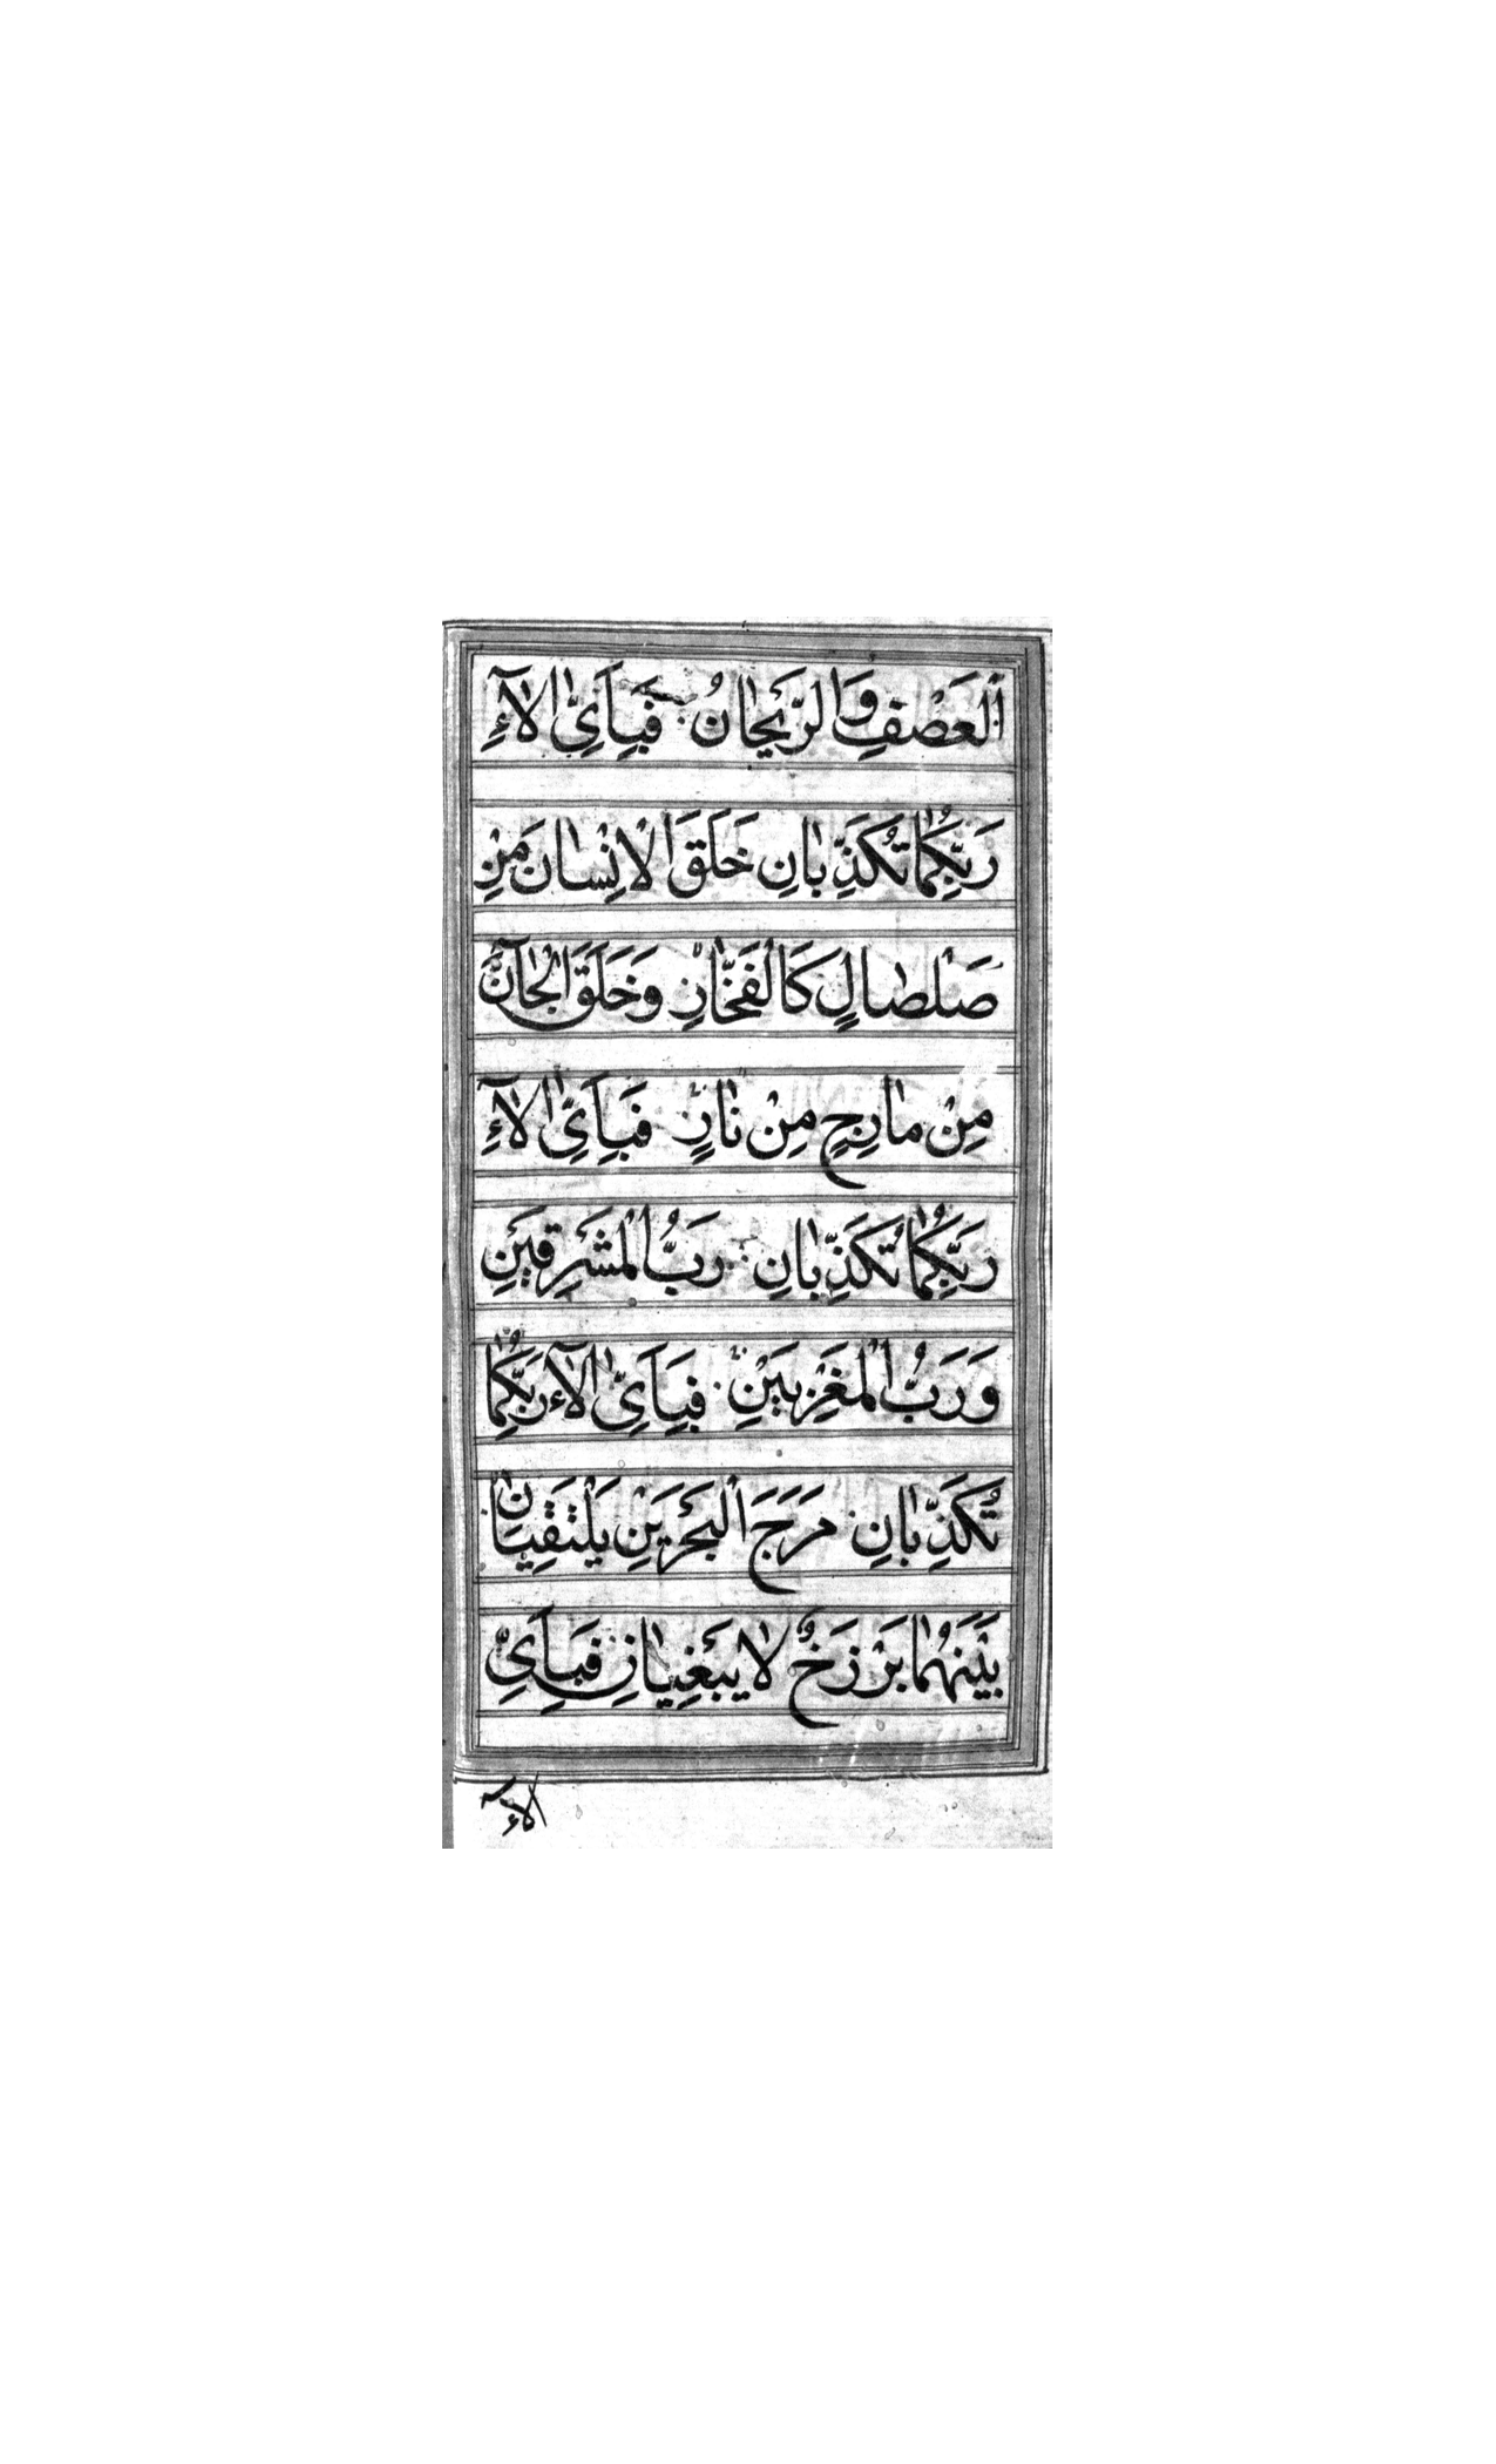 اَلْعَصْفِ وَالرَّيْحانُ فَبِاَيِّ اٰلآءِ
رَبِّكُمٰا تُكَذِّبٰانِ خَلَقَ الْاِنْسٰانَ مِنْ
صَلْصٰالٍ كَالْفَخّٰارِ وَخَلَقَ الْجٰآنَّ
مِنْ مٰارِجٍ مِنْ نٰارٍ فَبِاَيِّ اٰلآءِ
رَبِّكُمٰا تُكَذِّبٰانِ رَبُّ الْمَشْرِقَيْنِ
وَرَبُّ الْمَغْرِبَيْنِ فَبِاَيِّ اٰلآءِ رَبِّكُمٰا
تُكَذِّبٰانِ مَرَجَ الْبَحْرَيْنِ يَلْتَقِيٰانِ
بَيْنَهُمٰا بَرْزَخٌ لٰا يَبْغِيٰانِ فَبِاَيِّ
اٰلآءِ